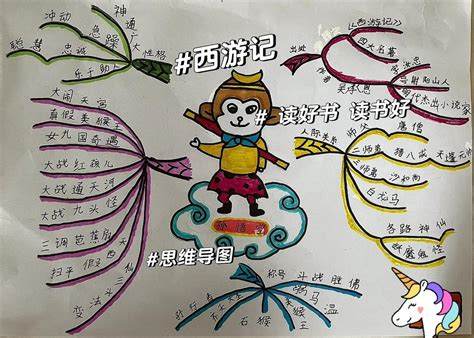 冲动
急躁
神通广大
聪慧
忠诚
性格
乐于助人
#西游记
#读好书 读书好
#思维导图
《西游记》
出处
四大名著
作者
吴承恩
射阳山人
明代杰出小说家
大闹天宫
真假美猴王
女儿国奇遇
大战红孩儿
大战通天河
大战九头怪
三调芭蕉扇
扫平
变法义三仙
孙悟空
人际关系
师父
唐僧
二师弟
猪八戒
天蓬元帅
三师弟
沙和尚
白龙马
各路神仙
妖魔鬼怪
称号
斗战胜佛
弼马温
美猴王
石猴
孙行者